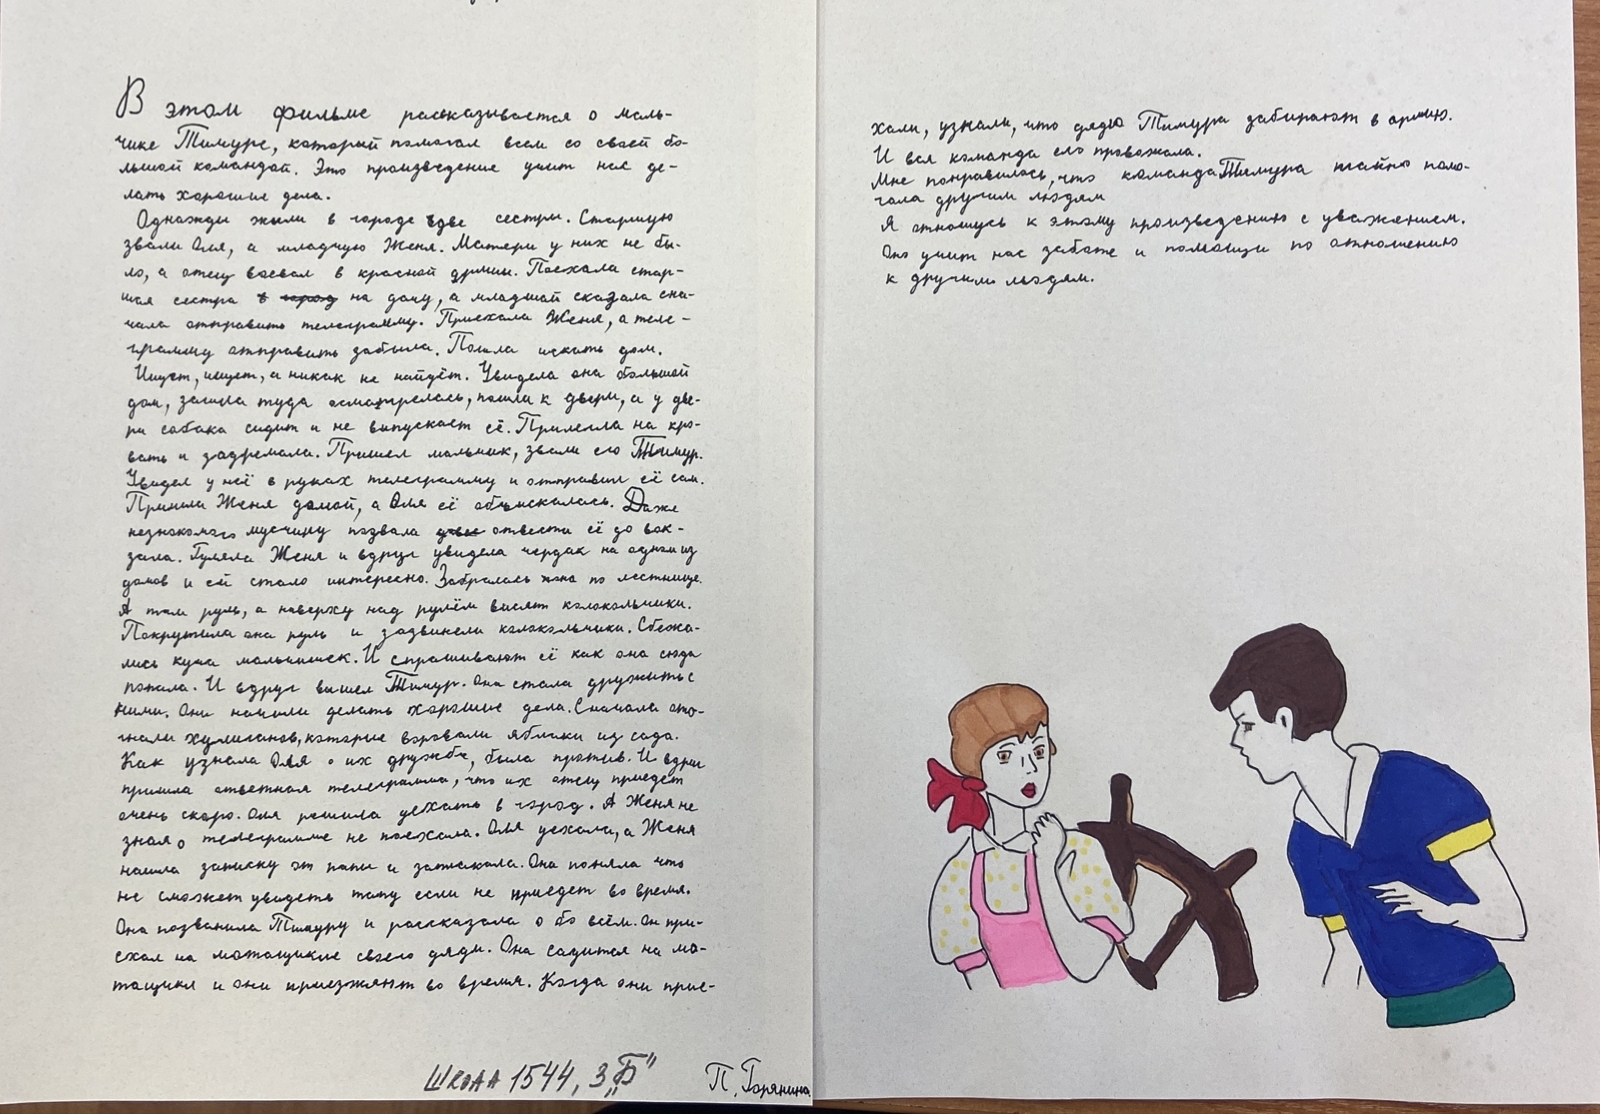 В этом фильме рассказывается о маль-
чике Тимуре, который помогал всем со своей бо-
льшой командой. Это произведение учит нас де-
лать хорошие дела.
Однажды жили в городе две сестры. Старшую
звали Оля, а младшую Женя. Матери у них не бы-
ло, а отец воевал в красной армии. Поехала стар-
шая сестра в город на дачу, а младшой сказала сна-
чала отправить телеграмму. Приехала Женя, а теле-
грамму отправить забыла. Пошла искать дом.
Ищет, ищет, а никак не найдёт. Увидела она большой
дом, зашла туда осмотрелась, пошла к двери, а у две-
ри собака сидит и не выпускает её. Прилегла на кро-
вать и задремала. Пришел мальчик, звали его Тимур.
Увидел у неё в руках телеграмму и отправил её сам.
Пришла Женя домой, а Оля её обыскалась. Даже
незнакомого мусчину позвала отвести её до вок-
зала. Гуляла Женя и вдруг увидела чердак на одном из
домов и ей стало интересно. Забралась она по лестнице.
А там руль, а наверху над рулём висят колокольчики.
Покрутила она руль и задвинели колокольчики. Сбежа-
лись куча мальчишек. И спрашивают её как она сюда
попала. И вдруг вышел Тимур. Она стала дружить с
ними. Они начили делать хорошие дела. Сначала ото-
гнали хулиганов, которые воровали яблоки из сада.
Как узнала Оля о их дружбе, была против. И вдруг
пришла ответная телеграмма, что их отец приедет
очень скоро. Оля решила уехать в город. А Женя не
зная о телеграмме не поехала. Оля уехала, а Женя
нашла записку от папы и заплакала. Она поняла что
не сможет увидеть папу если не приедет во время.
Она позванила Тимуру и рассказала о бо всём. Он при-
ехал на мотацикле своего дяди. Она садится на мо-
тацикл и они приезжяют во время. Когда они прие-
Школа 1544, 3 „Б"
П. Горянина
хали, узнали, что дядю Тимура забирают в армию.
И вся команда его провожала.
Мне понравилось, что команда Тимура тайно помо-
гала другим людям
Я отношусь к этому произведению с уважением.
Оно учит нас заботе и помощи по отношению
к другим людям.